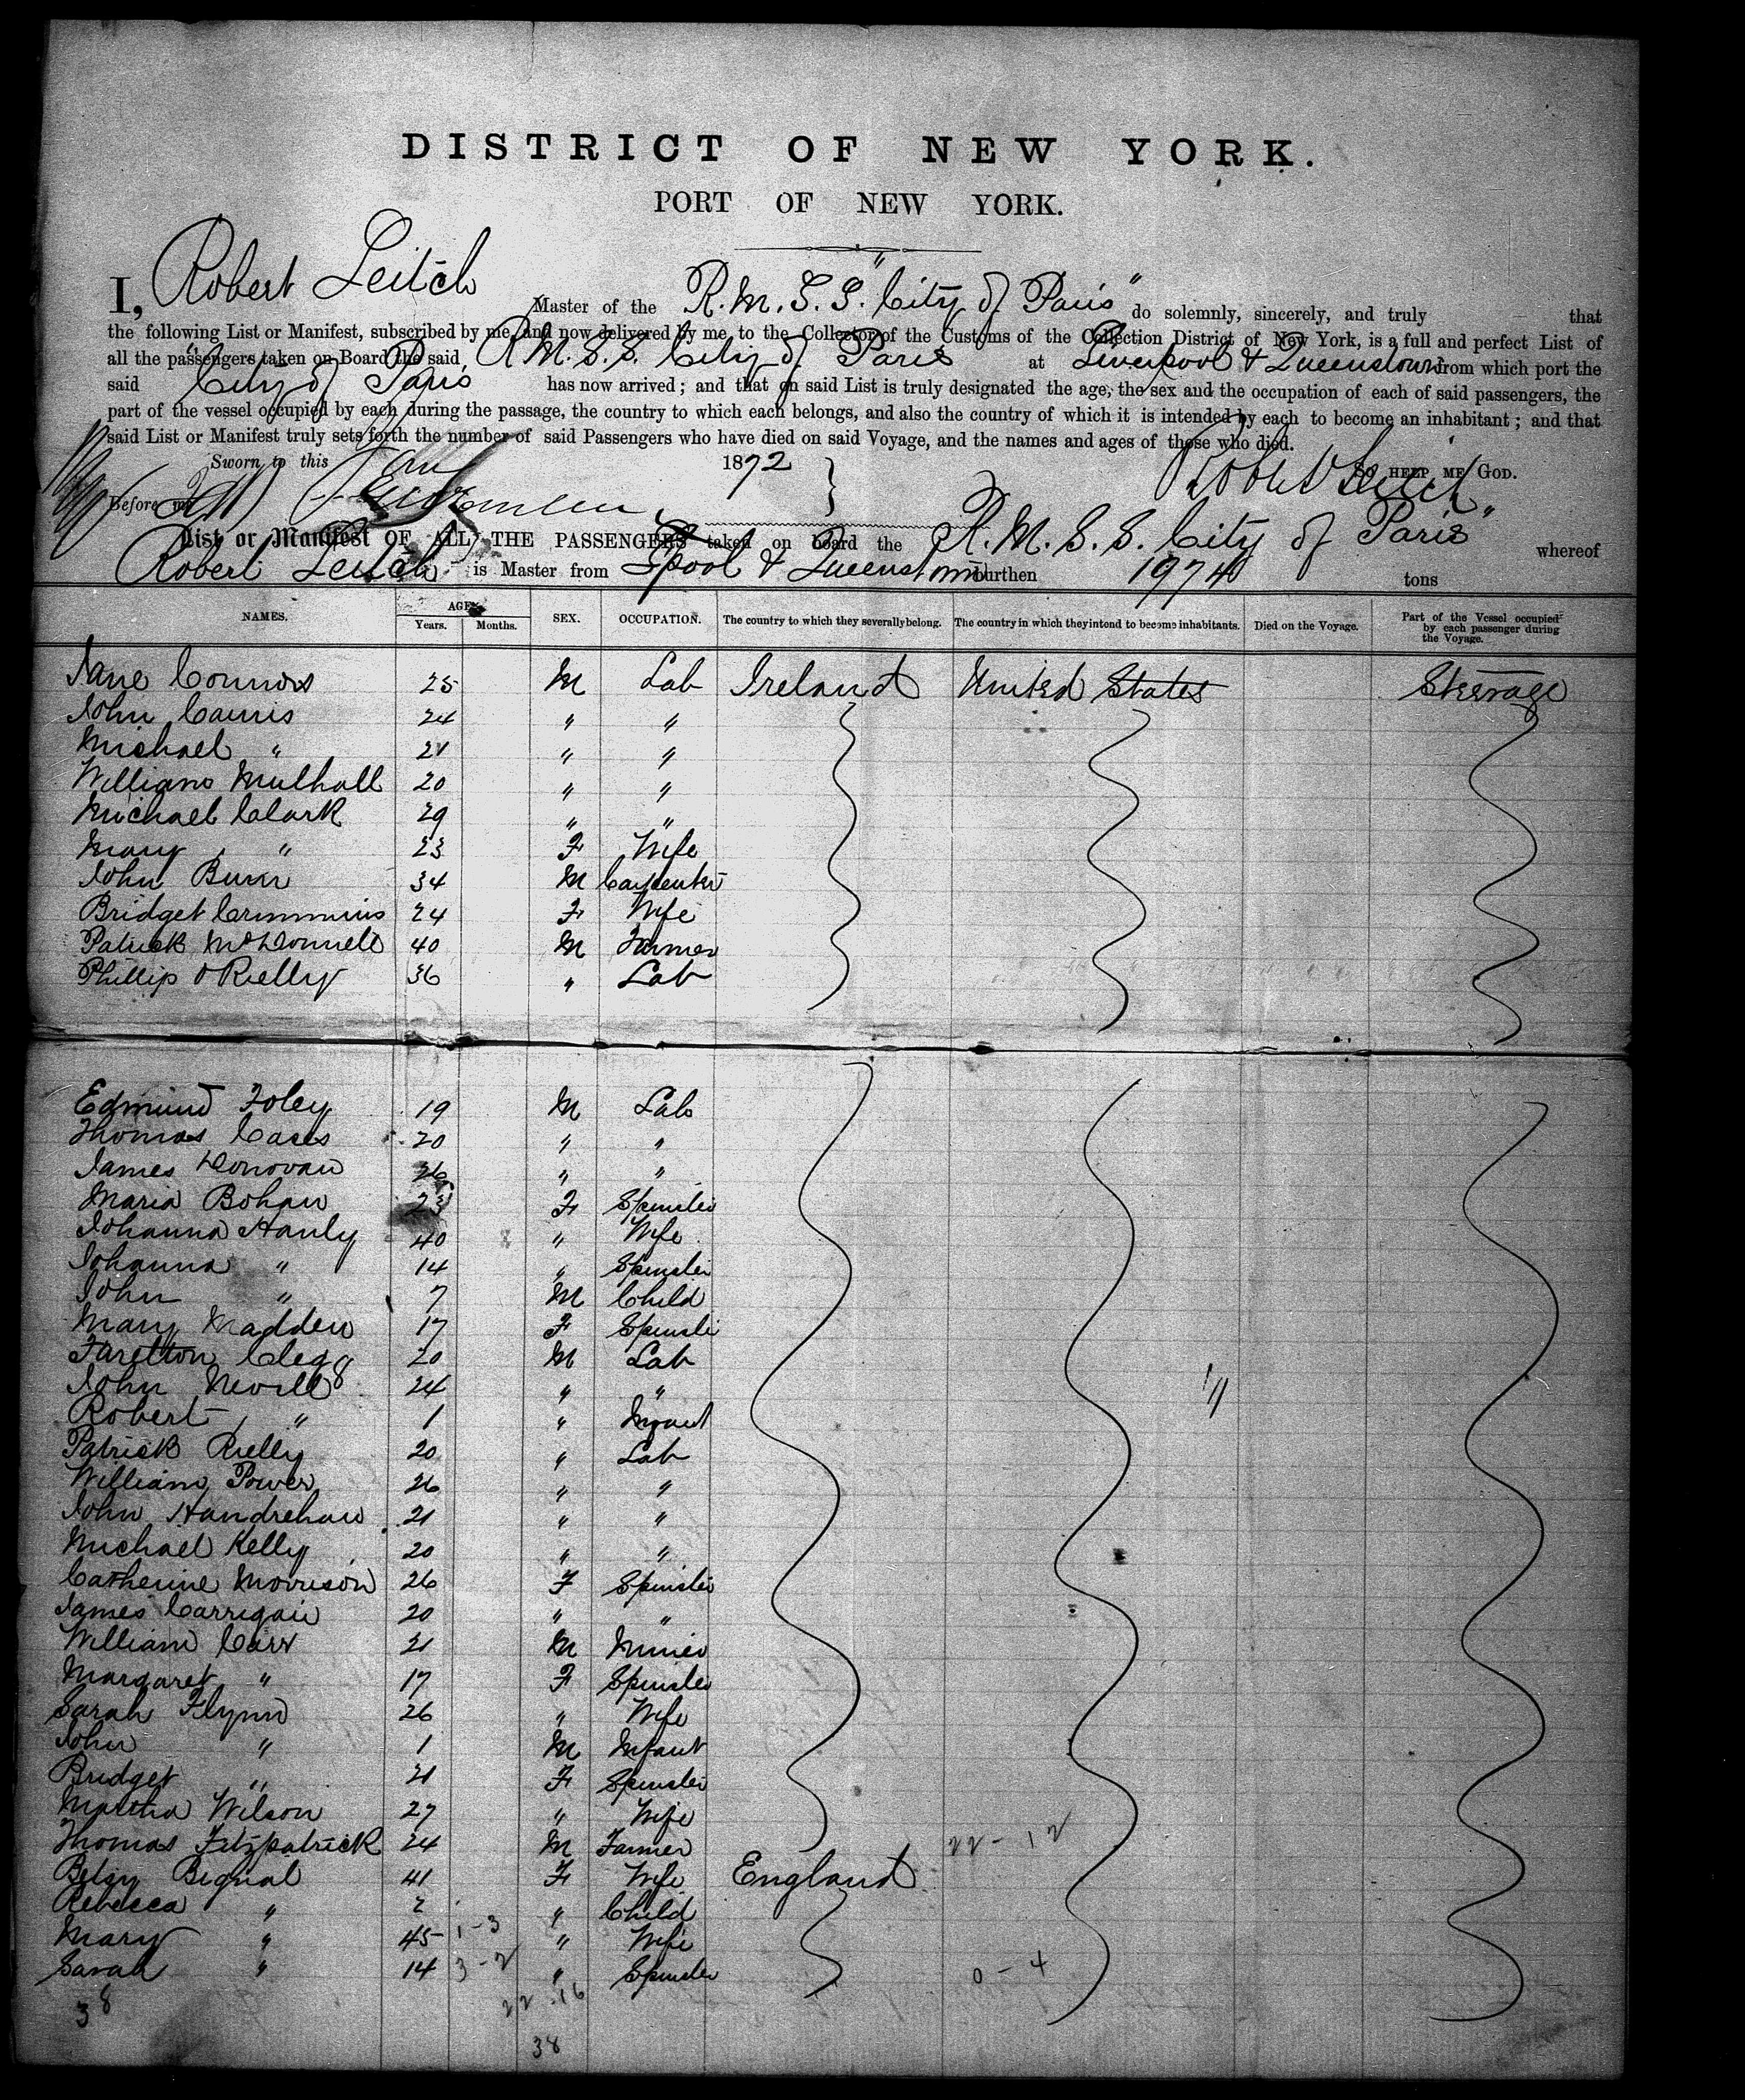 DISTRICT OF NEW YORK.
PORT OF NEW YORK.
I, Robert Leitch Master of the R.M.S.S. "City of Paris" do solemnly, sincerely, and truly that
the following List or Manifest, subscribed by me, and now delivered by me, to the Collector of the Customs of the Collection District of New York, is a full and perfect List of
all the passengers taken on Board the said R.M.S.S. City of Paris at Liverpool & Queenstown from which port the
said City of Paris has now arrived; and that on said List is truly designated the age, the sex and the occupation of each of said passengers, the
part of the vessel occupied by each during the passage, the country to which each belongs, and also the country of which it is intended by each to become an inhabitant; and that
said List or Manifest truly sets forth the number of said Passengers who have died on said Voyage, and the names and ages of those who died.
Sworn to this Jany 1872 Robert Leitch SO HELP ME GOD.
Before me
List or Manifest OF ALL THE PASSENGERS taken on board the R.M.S.S. City of Paris" whereof
Robert Leitch is Master from Lpool & Queenstown burthen 1974 tons
NAMES. AGE. Years. Months. SEX. OCCUPATION. The country to which they severally belong. The country in which they intend to become inhabitants. Died on the Voyage. Part of the Vessel occupied by each passenger during the Voyage.
Jane Connors 25 M Lab Ireland United States Steerage
John Cairns 24 " "
Michael " 21 " "
William Mulhall 20 " "
Michael Clark 29 " "
Mary " 23 F Wife
John Burn 34 M Carpenter
Bridget Crimmins 24 F Wife
Patrick McDonnell 40 M Farmer
Phillip O Rielly 36 " Lab
Edmund Foley 19 M Lab
Thomas Cases 20 " "
James Donovan 26 " "
Maria Bohan 23 F Spinster
Johanna Hanly 40 " Wife
Johanna " 14 " Spinster
John " 7 M Child
Mary Madden 17 F Spinster
Tarelton Clegg 20 M Lab
John Nevill 24 " "
Robert " 1 " Infant
Patrick Rielly 20 " Lab
William Power 26 " "
John Handrehan 21 " "
Michael Kelly 20 " "
Catherine Morrison 26 F Spinster
James Carrigan 20 " "
William Carr 21 M Miner
Margaret " 17 F Spinster
Sarah Flynn 26 " Wife
John " 1 M Infant
Bridget " 21 F Spinster
Martha Wilson 27 " Wife
Thomas Fitzpatrick 24 M Farmer 22-12
Betsy Bignal 41 F Wife England
Rebecca " 2 " Child
Mary " 45 1-3 " Wife
Sarah " 14 3-2 " Spinster 0-4
38 22-16
38